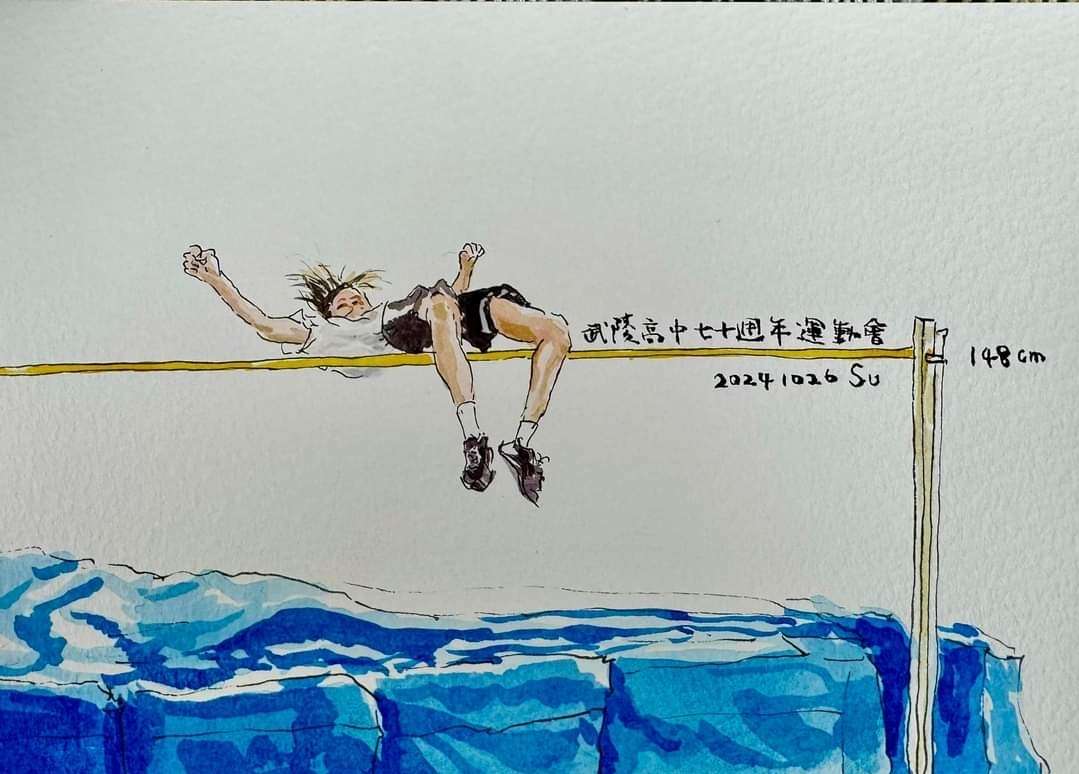 武陵高中七十週年運動會
148cm
20241026 Su